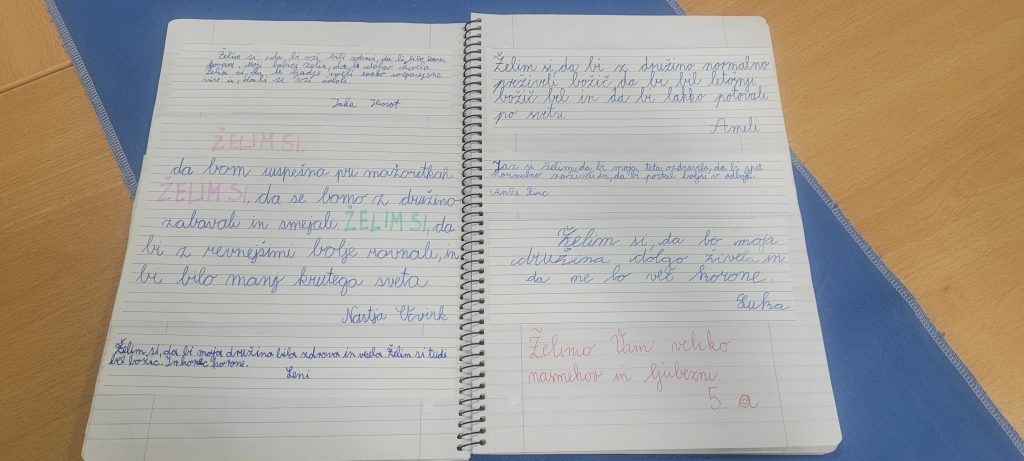 Želim si, da bi vsi bili zdravi, da bi bilo konec
korone. Moji babici želim, da bi dolgo živela.
Želim si, da bi ljudje imeli enako
vire in, da bi se vsi
Jaka
ŽELIM SI,
da bom uspešna pri mažoretkah.
ŽELIM SI, da se bomo z družino
zabavali in smejali. ŽELIM SI, da
bi z revnejšimi bolje ravnali, in
bi bilo manj krutega sveta.
Nastja
Želim si, da bi moja družina bila zdrava in vesela. Želim si tudi
bel božič. In konec korone.
Leni
Želim si, da bi z družino normalno
preživeli božič, da bi bil letošnji
božič bel in da bi lahko potovali
po svetu.
Ameli
Jaz si želim, da bi moja teta ozdravela, da bi spet
normalno zaživeli in, da bi postali boljši v odbojki.
Anže
Želim si, da bo moja
družina dolgo živela in
da ne bo več korone.
Luka
Želimo Vam veliko
nasmehov in ljubezni.
5. a